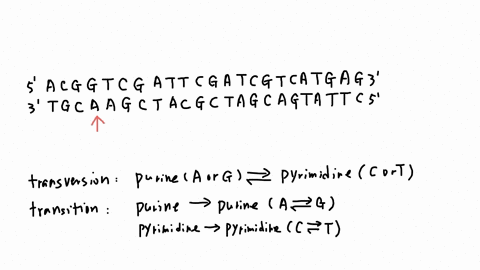 5' ACGGTCG ATTCGATCGTCATGAG 3'
3' TGCAAGCTACGCTAGCAGTATTC 5'
↑
transversion: purine (A or G) ⇌ pyrimidine (C or T)
transition: purine → purine (A ⇌ G)
pyrimidine → pyrimidine (C ⇌ T)